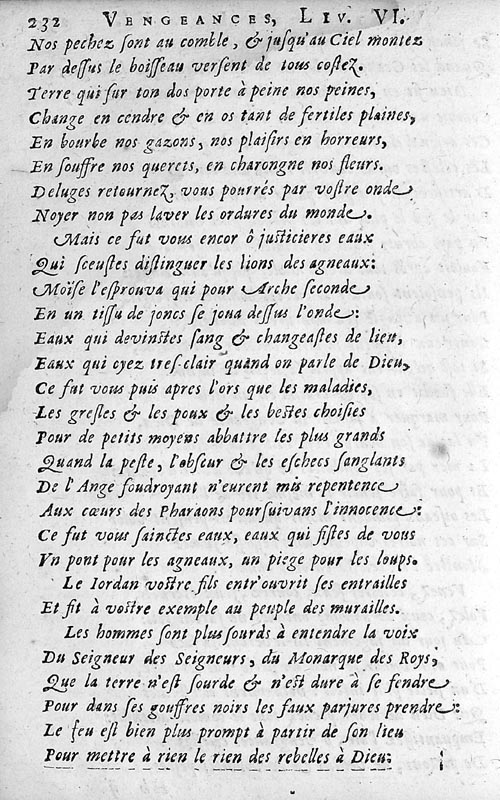 232 VENGEANCES, LIV. VI.
Nos pechez sont au comble, & jusqu'au Ciel montez
Par dessus le boisseau versent de tous costez.
Terre qui sur ton dos porte à peine nos peines,
Change en cendre & en os tant de fertiles plaines,
En bourbe nos gazons, nos plaisirs en horreurs,
En souffre nos querets, en charongne nos fleurs.
Deluges retournez, vous pourrés par vostre onde
Noyer non pas laver les ordures du monde.
Mais ce fut vous encor ô justicieres eaux
Qui sceustes distinguer les lions des agneaux:
Moïse l'esprouva qui pour Arche seconde
En un tissu de joncs se joua dessus l'onde:
Eaux qui devinctes sang & changeastes de lieu,
Eaux qui oyez tres-clair quand on parle de Dieu,
Ce fut vous puis apres l'ors que les maladies,
Les gresles & les poux & les bestes choisies
Pour de petits moyens abbattre les plus grands
Quand la peste, l'obscur & les eschecs sanglants
De l'Ange foudroyant n'eurent mis repentence
Aux cœurs des Pharaons poursuivans l'innocence:
Ce fut vous sainctes eaux, eaux qui fistes de vous
Vn pont pour les agneaux, un piege pour les loups.
Le Iordan vostre fils entr'ouvrit ses entrailles
Et fit à vostre exemple au peuple des murailles.
Les hommes sont plus sourds à entendre la voix
Du Seigneur des Seigneurs, du Monarque des Roys,
Que la terre n'est sourde & n'est dure à se fendre
Pour dans ses gouffres noirs les faux parjures prendre:
Le feu est bien plus prompt à partir de son lieu
Pour mettre à rien le rien des rebelles à Dieu: